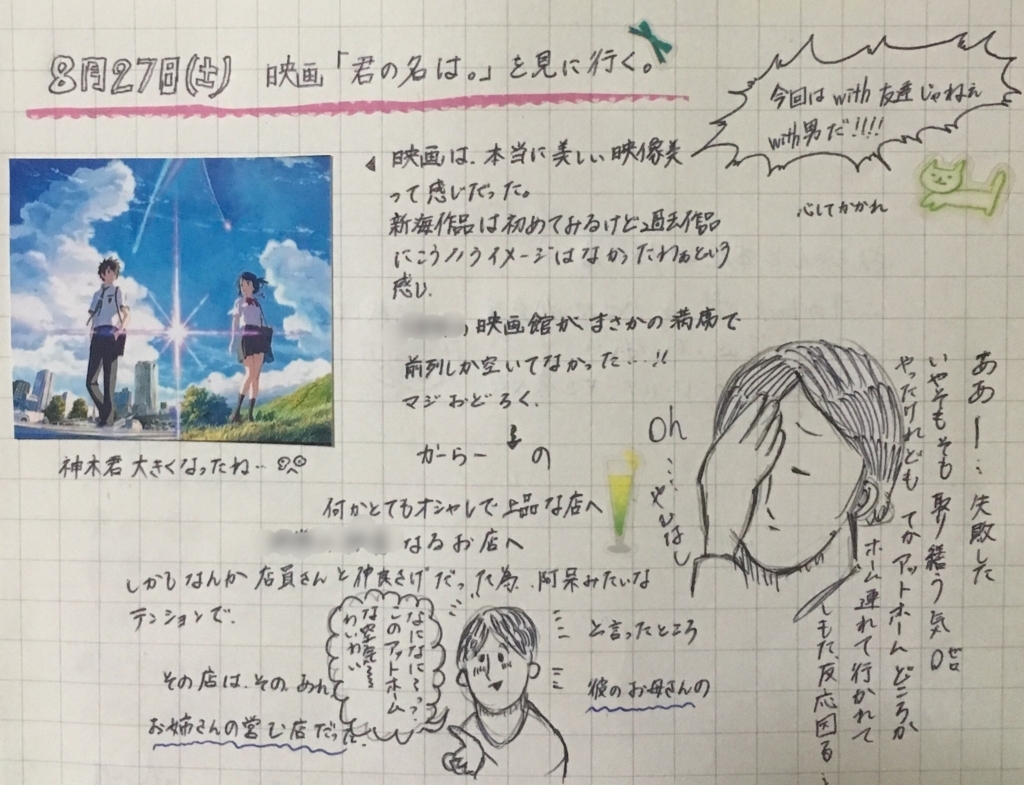 8月27日(土) 映画「君の名は。」を見に行く。
今回は with 友達じゃねぇ
with男だ!!!!
心してかかれ
映画は、本当に美しい映像美
って感じだった。
新海作品は初めてみるけど過去作品
にこういうイメージはなかったわぁという
感じ.
映画館がまさかの満席で
前列しか空いてなかった…!!
マジおどろく.
神木君大きくなったね…
がーらー
の
何かとてもオシャレで上品な店へ
なるお店へ
しかもなんか店員さんと仲良さげだった為、阿呆みたいな
テンションで.
なになに〜っ?
このアットホーム
な空気〜
わいわい
と言ったところ
その店は、その、あれ、
彼のお母さんの
お姉さんの営む店だった.
Oh
……やびはし
ああー…失敗した
いやそもそも取り繕う気0ゼロ
やったけれども てかアットホームどころか
ホーム連れて行かれて
しもた、反応困る…